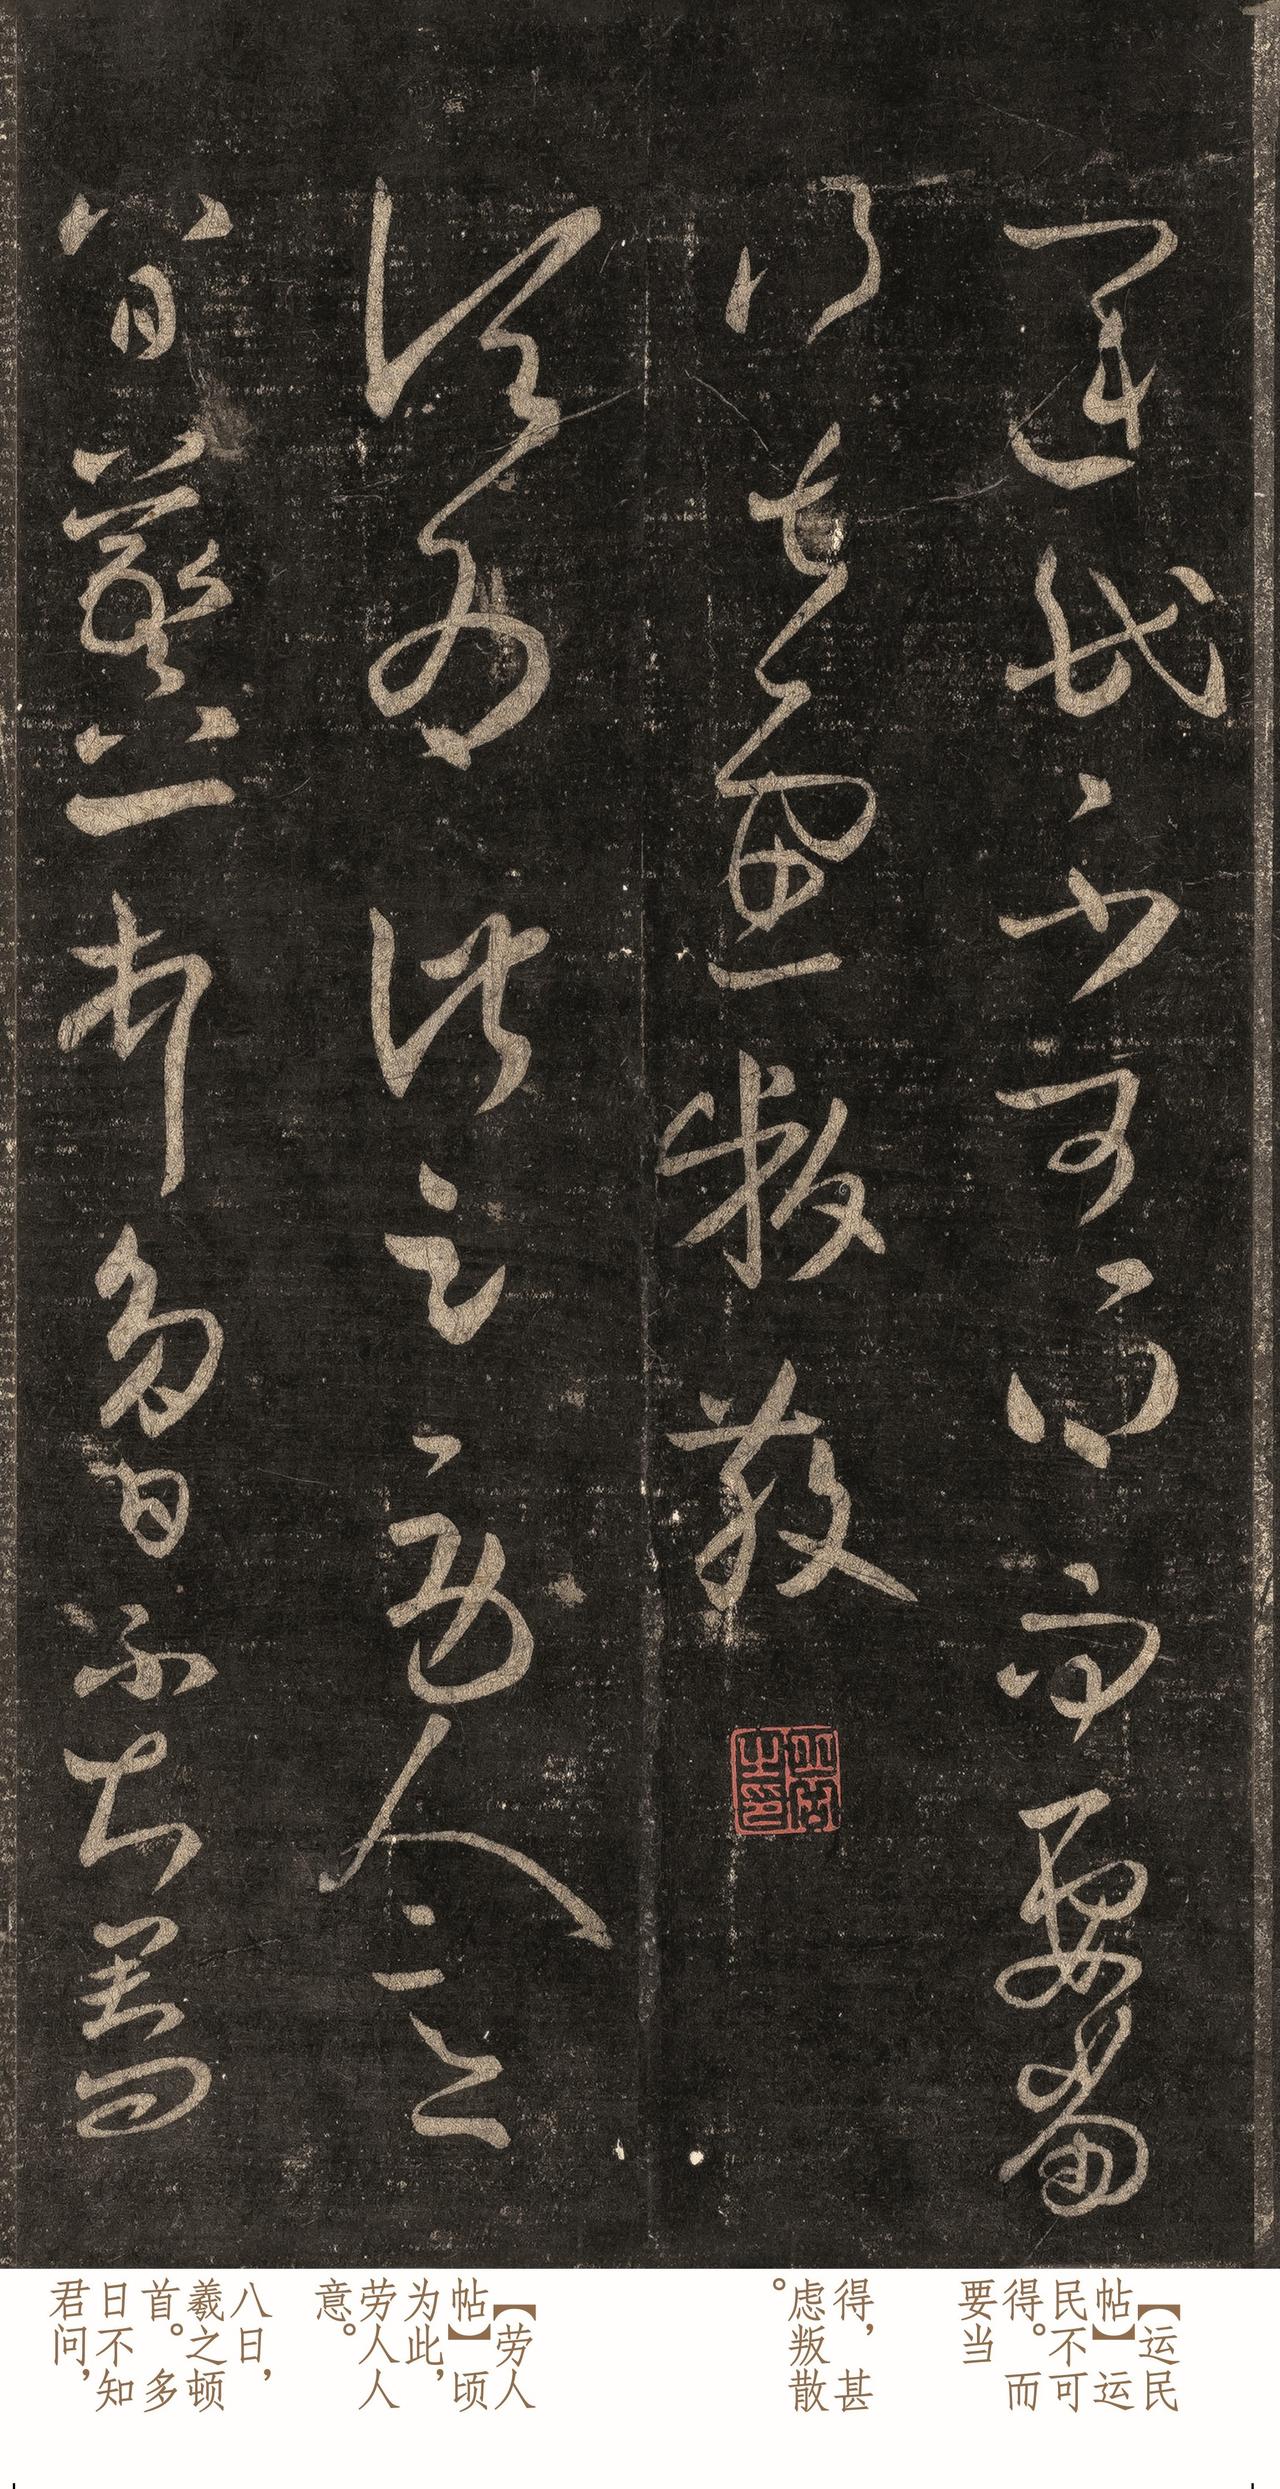 運民不可得而要當
得甚慮叛散
頃為此勞人意
八日羲之頓首多日不知君問
【运民
帖】运
民不可
得。而
要当
得，甚
虑叛散
。
【劳人
帖】顷
为此，
劳人人
意。
八日，
羲之顿
首。多
日不知
君问，